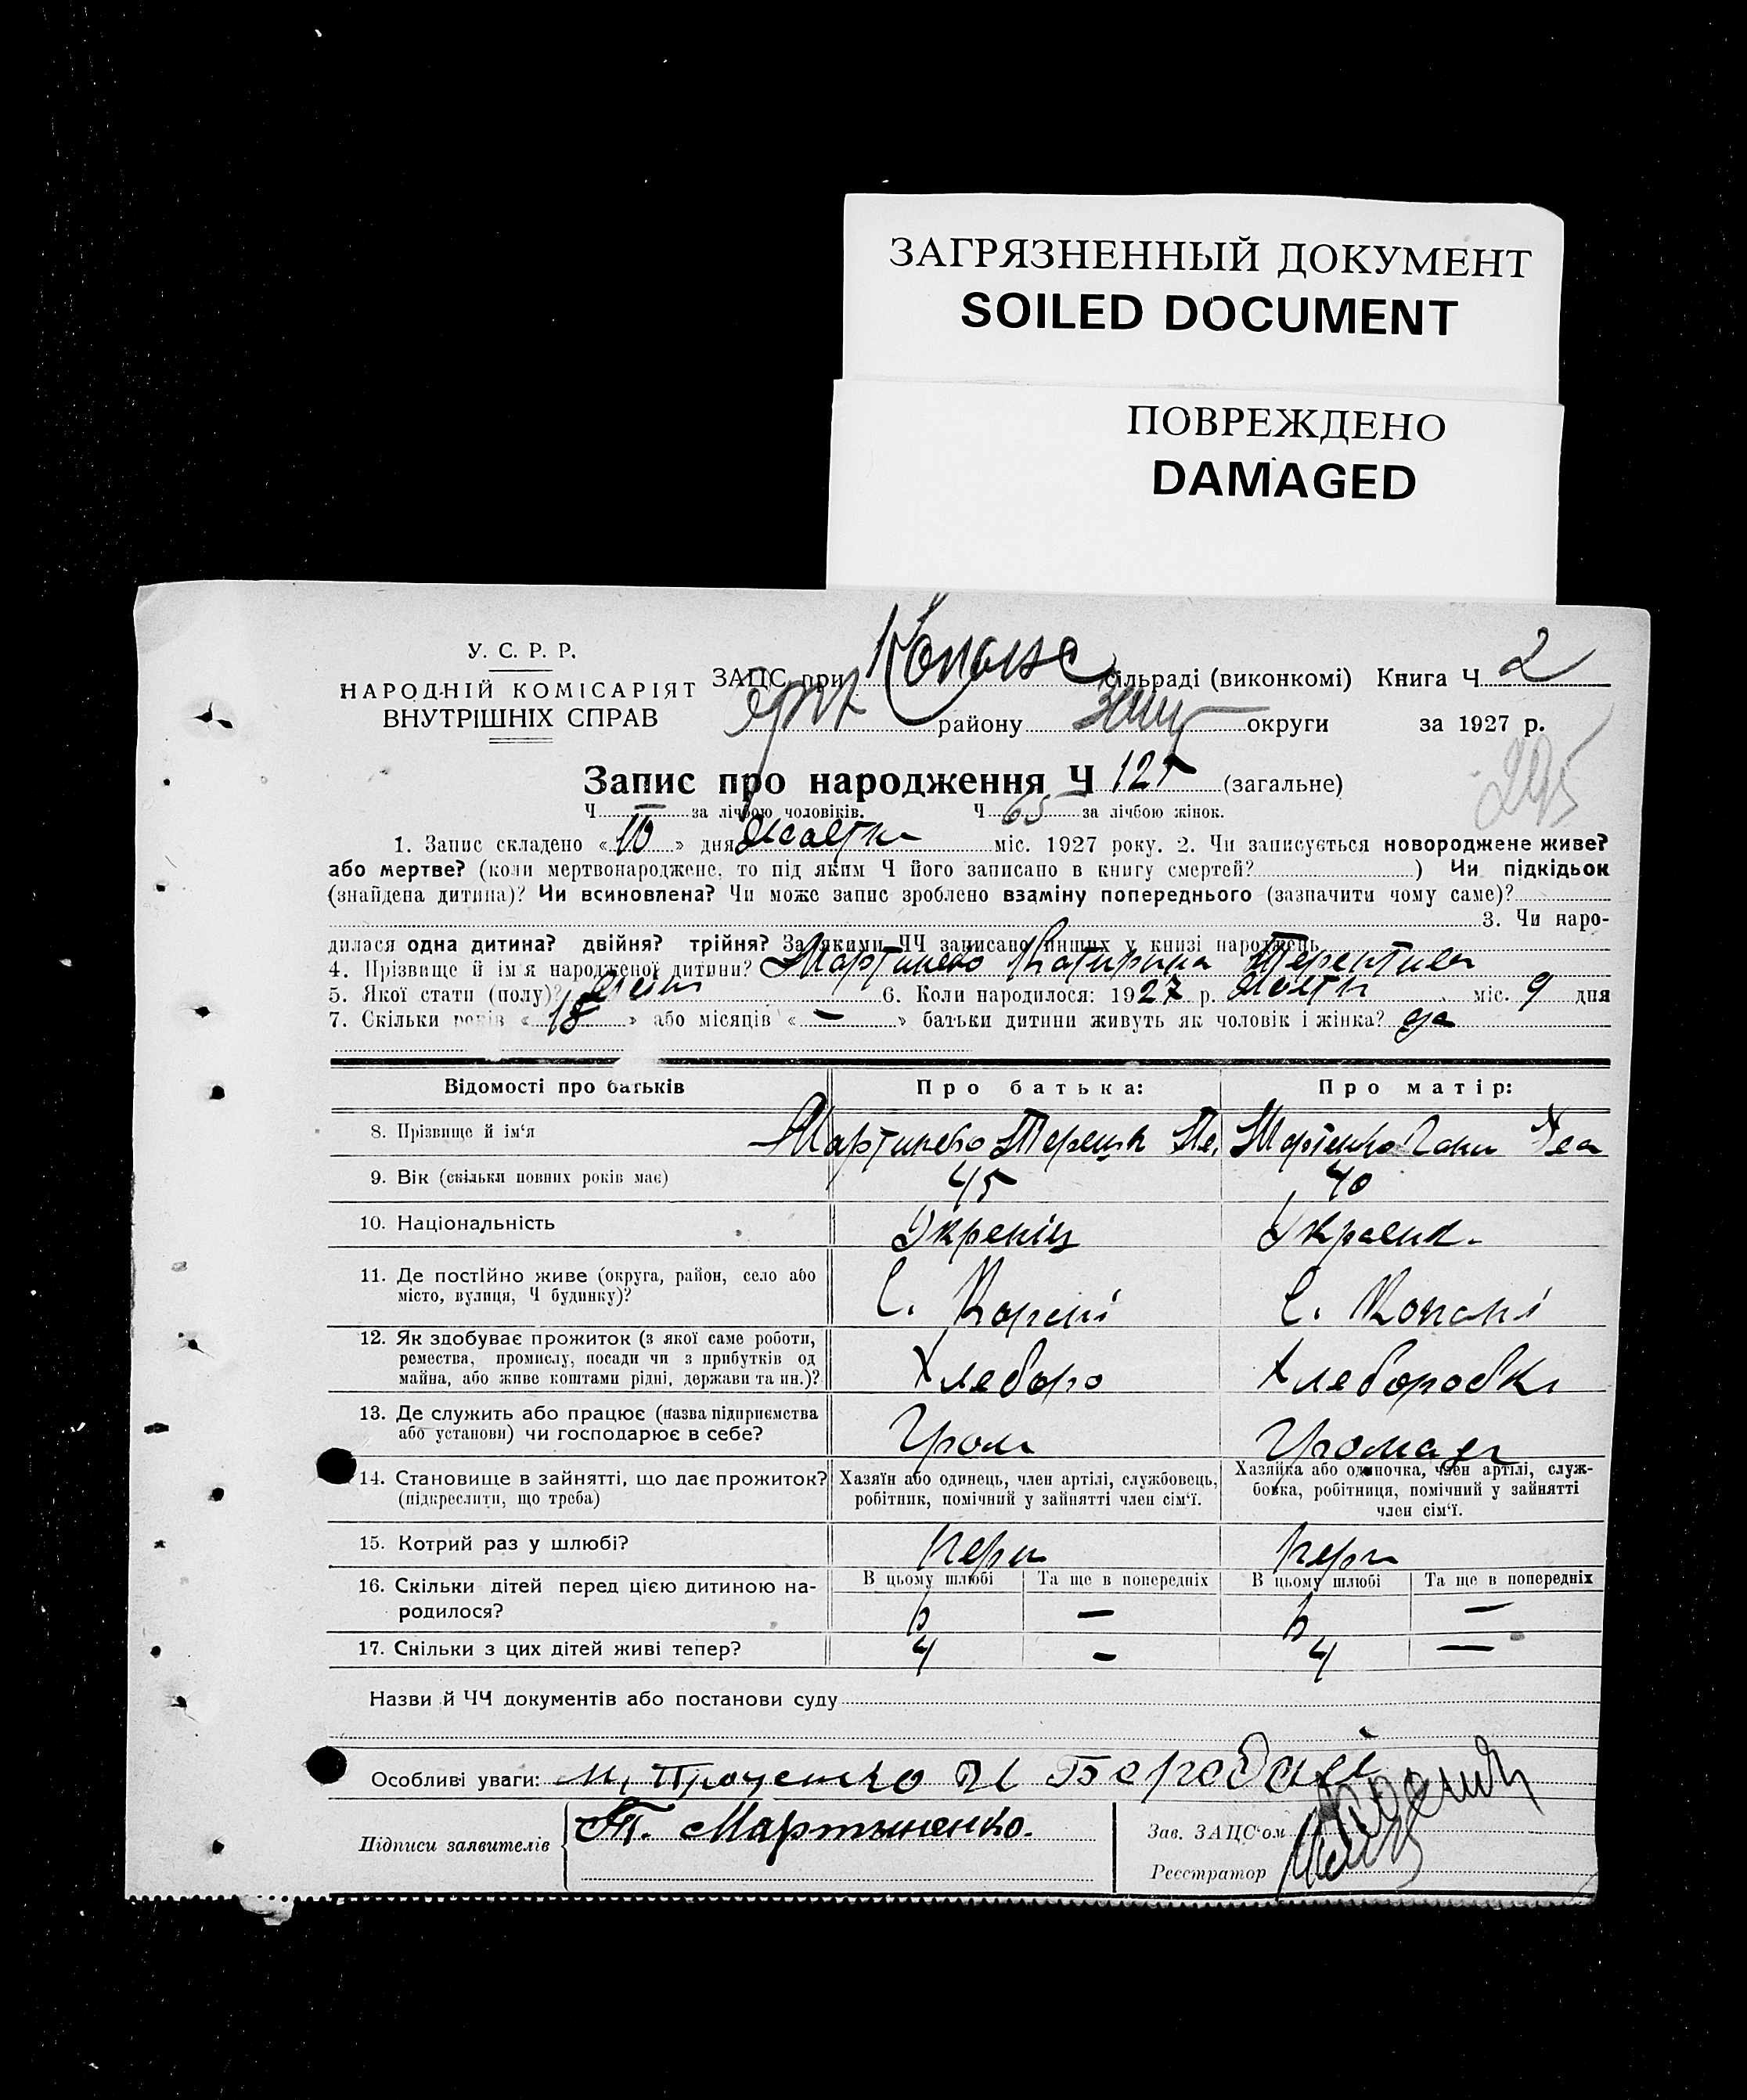 ЗАГРЯЗНЕННЫЙ ДОКУМЕНТ
SOILED DOCUMENT
ПОВРЕЖДЕНО
DAMAGED
У. С. Р. Р.
НАРОДНІЙ КОМІСАРІЯТ
ВНУТРІШНІХ СПРАВ
ЗАПС при сільраді (виконкомі) Книга Ч 2
району округи за 1927 р.
Запис про народження Ч (загальне)
295
Ч — за лічбою чоловіків. Ч 65 за лічбою жінок.
1. Запис складено «10» дня міс. 1927 року. 2. Чи записується новороджене живе?
або мертве? (коли мертвонароджене, то під яким Ч його записано в книгу смертей? ) Чи підкідьок
(знайдена дитина)? Чи всиновлена? Чи може запис зроблено взаміну попереднього (зазначити чому саме)?
3. Чи наро-
дилася одна дитина? двійня? трійня? За якими ЧЧ записано инших у книзі народжень
4. Прізвище й ім'я народженої дитини? Катирина
5. Якої стати (полу)? 6. Коли народилося: 1927 р. міс. 9 дня
7. Скільки років «18» або місяців «—» батьки дитини живуть як чоловік і жінка? да
Відомості про батьків Про батька: Про матір:
8. Прізвище й ім'я
9. Вік (скільки повних років має) 45 40
10. Національність
11. Де постійно живе (округа, район, село або
місто, вулиця, Ч будинку)? с. Копані с. Копані
12. Як здобуває прожиток (з якої саме роботи,
ремества, промислу, посади чи з прибутків од
майна, або живе коштами рідні, держави та ин.)? Хлеборо Хлеборобка
13. Де служить або працює (назва підприємства
або установи) чи господарює в себе? Гром
14. Становище в зайнятті, що дає прожиток?
(підкреслити, що треба)
Хазяїн або одинець, член артілі, службовець,
робітник, помічний у зайнятті член сім'ї.
Хазяйка або одиночка, член артілі, служ-
бовка, робітниця, помічний у зайнятті
член сім'ї.
15. Котрий раз у шлюбі?
16. Скільки дітей перед цією дитиною на-
родилося?
В цьому шлюбі Та ще в попередніх В цьому шлюбі Та ще в попередніх
6 — 6 —
17. Скільки з цих дітей живі тепер? 4 - 4 —
Назви й ЧЧ документів або постанови суду
Особливі уваги:
Підписи заявителів Т. Мартыненко.
Зав. ЗАЦС'ом
Реєстратор